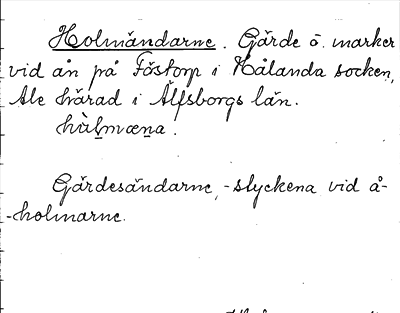 Holmändarne. Gärde o. marker
vid ån på Föstorp i Hålanda socken,
Ale härad i Älfsborgs län.
hùlmæna.
Gärdesändarne, -styckena vid å-
-holmarne.